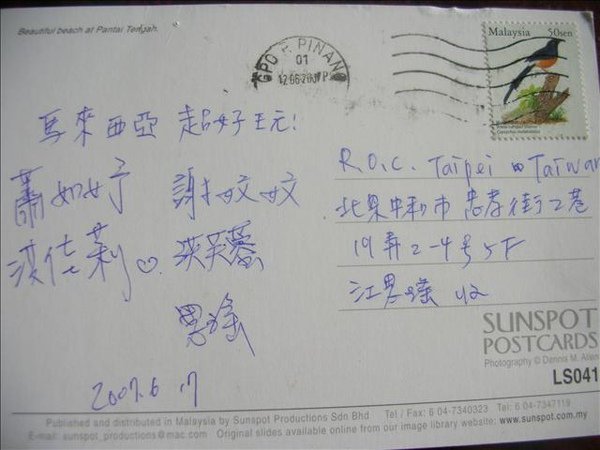 Beautiful beach at Pantai Tengah.
GPO P. PINANG
01
Malaysia 50sen
馬來西亞 超好玩!
蕭如妤 謝妏妏
莉♡ 洪芙蓉
2007.6.17
R.O.C. Taipei Taiwan
北県中和市 忠孝街工巷
19弄2-4号5F
江思瑤 收
SUNSPOT
POSTCARDS
Photography © Dennis M. Allen
LS041
Published and distributed in Malaysia by Sunspot Productions Sdn Bhd Tel / Fax: 6 04-7340323 Tel: 6 04-7347119
E-mail: sunspot_productions@mac.com Original slides available online from our image library website: www.sunspot.com.my